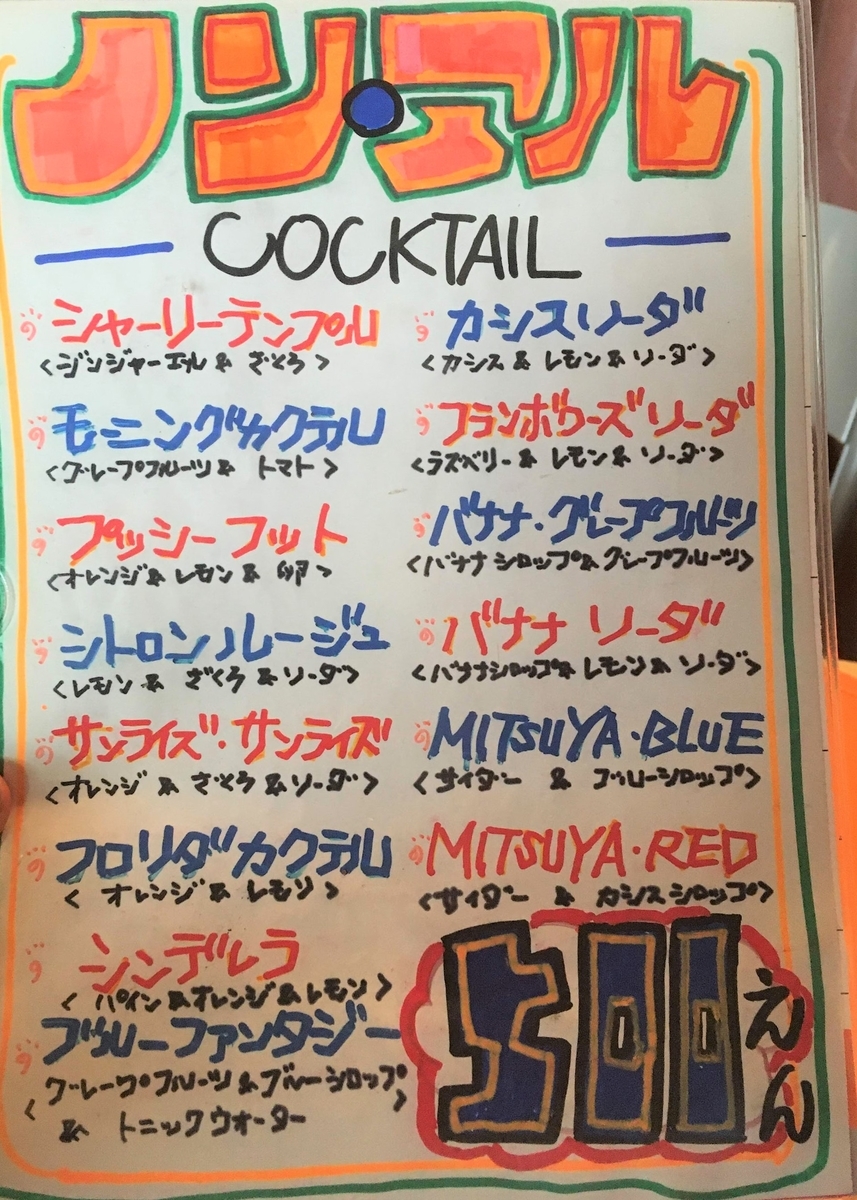 ノン・アル
COCKTAIL
シャーリーテンプル
<ジンジャーエル & ざくろ>
モーニングカクテル
<グレープフルーツ & トマト>
プッシーフット
<オレンジ & レモン & 卵>
シトロンルージュ
<レモン & ざくろ & ソーダ>
サンライズ・サンライズ
<オレンジ & ざくろ & ソーダ>
フロリダカクテル
<オレンジ & レモン>
シンデレラ
<パイン & オレンジ & レモン>
ブルーファンタジー
<グレープフルーツ & ブルーシロップ
& トニックウォーター>
カシスソーダ
<カシス & レモン & ソーダ>
フランボワーズソーダ
<ラズベリー & レモン & ソーダ>
バナナ・グレープフルーツ
<バナナシロップ & グレープフルーツ>
バナナソーダ
<バナナシロップ & レモン & ソーダ>
MITSUYA・BLUE
<サイダー & ブルーシロップ>
MITSUYA・RED
<サイダー & カシスシロップ>
300えん